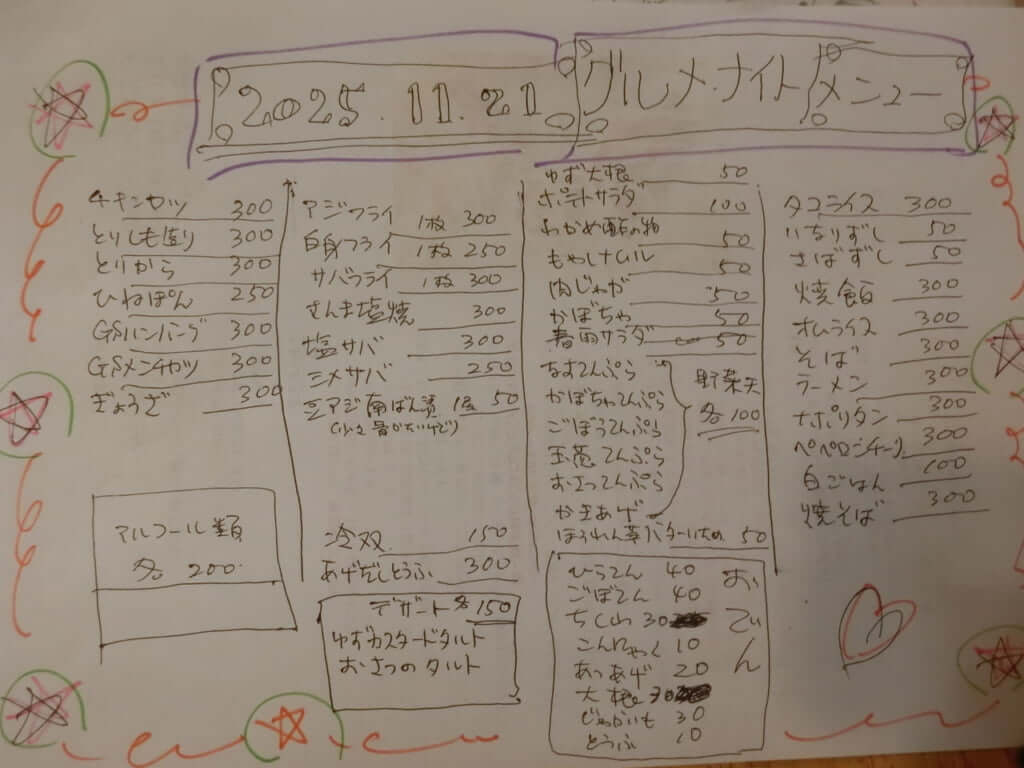 2025.11.21 グルメ・ナイトメニュー
チキンカツ 300
とりしお造り 300
とりから 300
ひねぽん 250
GSハンバーグ 300
GSメンチカツ 300
ぎょうざ 300
アルコール類
各 200
アジフライ 1枚 300
白身フライ 1枚 250
サバフライ 1枚 300
さんま塩焼 300
塩サバ 300
シメサバ 250
豆アジ南ばん漬 1尾 50
(小さ 骨かたいけど)
冷奴 150
あげだしとうふ 300
デザート各150
ゆずカスタードタルト
おさつのタルト
ゆず大根 50
ポテトサラダ 100
わかめ酢の物 50
もやしナムル 50
肉じゃが 50
かぼちゃ 50
春雨サラダ 50
なすてんぷら
かぼちゃてんぷら
ごぼうてんぷら
玉葱てんぷら
おさつてんぷら
かきあげ
野菜天
各100
ほうれん草バターいため 50
おでん
ひらてん 40
ごぼてん 40
ちくわ 30
こんにゃく 10
あつあげ 20
大根 30
じゃがいも 30
とうふ 10
タコライス 300
いなりずし 50
さばずし 50
焼飯 300
オムライス 300
そば 300
ラーメン 300
ナポリタン 300
ペペロンチーノ 300
白ごはん 100
焼そば 300